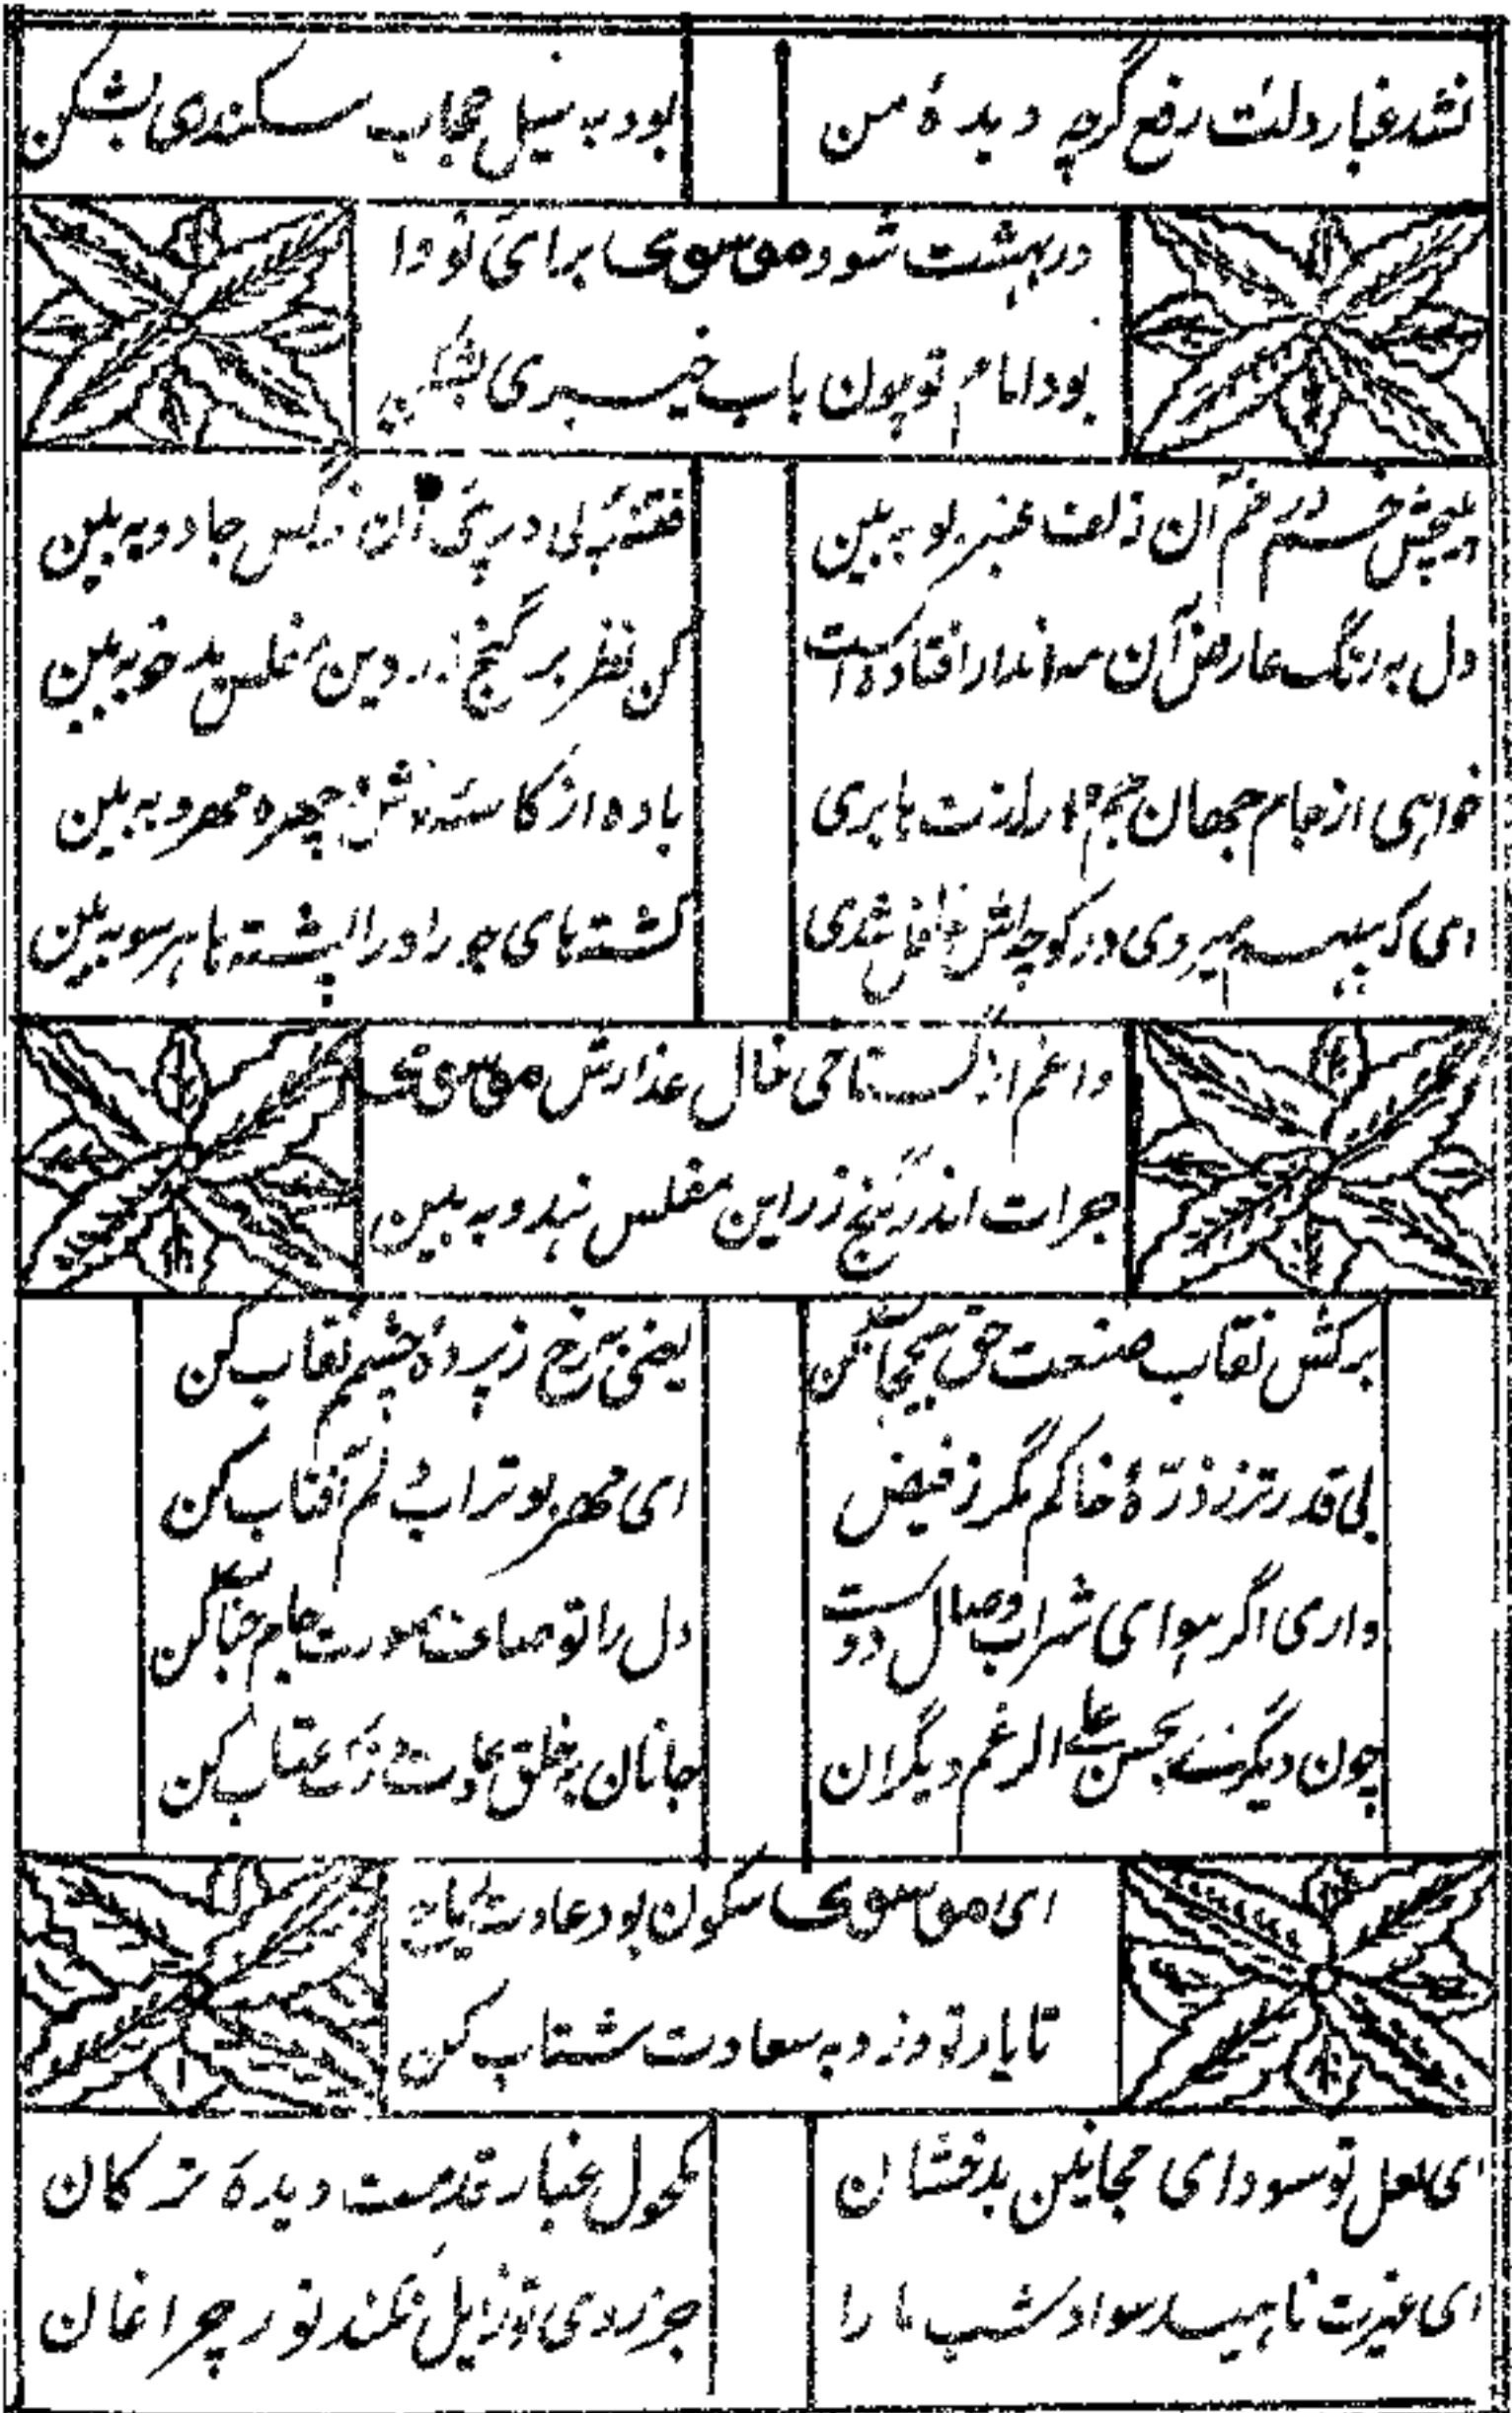 نشد غبار دلت رفع گرچه دیدهٔ من
بود به نیل حجاب سکندری بشکن
در بهشت شود موسوی برای تو وا
بود امام تو چون باب خیبری بشکن
پیچش خم در خم آن زلف عنبر بو به بین
فتنه‌ها در پی آن نرگس جادو به بین
دل به رنگ عارض آن افتاده است
کن نظر بر گنج این مفلس بد خو به بین
خواهی از جام جهان جم
باده از کاسه چهره مهرو به بین
ای که میروی در کوچه‌اش غافل شدی
کشته‌های جور او را پشته‌ها هر سو به بین
داغم از گستاخی خال عذارش موسوی
جرات اندر گنج زر این مفلس هندو به بین
برکش نقاب صنعت حق بیحجاب کن
یعنی به رخ ز پردهٔ چشمم نقاب کن
بی قدرتر ز ذرّهٔ خاکم مگر ز فیض
ای مهر بوتراب دلم آفتاب کن
داری اگر هوای شراب وصال دوست
دل را تو صاف صورت جام حباب کن
چون دیگرے بحسن علے الرغم دیگران
جانان بخلق عادت ترک عتاب کن
ای موسوی سکون بود عادت
تا یار تو و زود به سعادت شتاب کن
ای لعل تو سودای مجانین بدخشان
مکحول غبار قدمت دیدهٔ ترکان
ای غیرت ناهید سواد شب ما را
جز روی تو زایل نکند نور چراغان